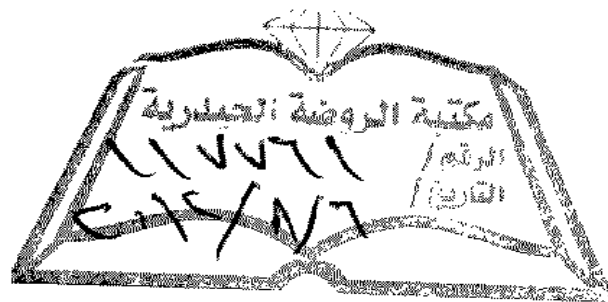 مكتبة الروضة الحيدرية
الرقم / ١١٧٧٦١
التاريخ / ٦/٨/٢٠١٢